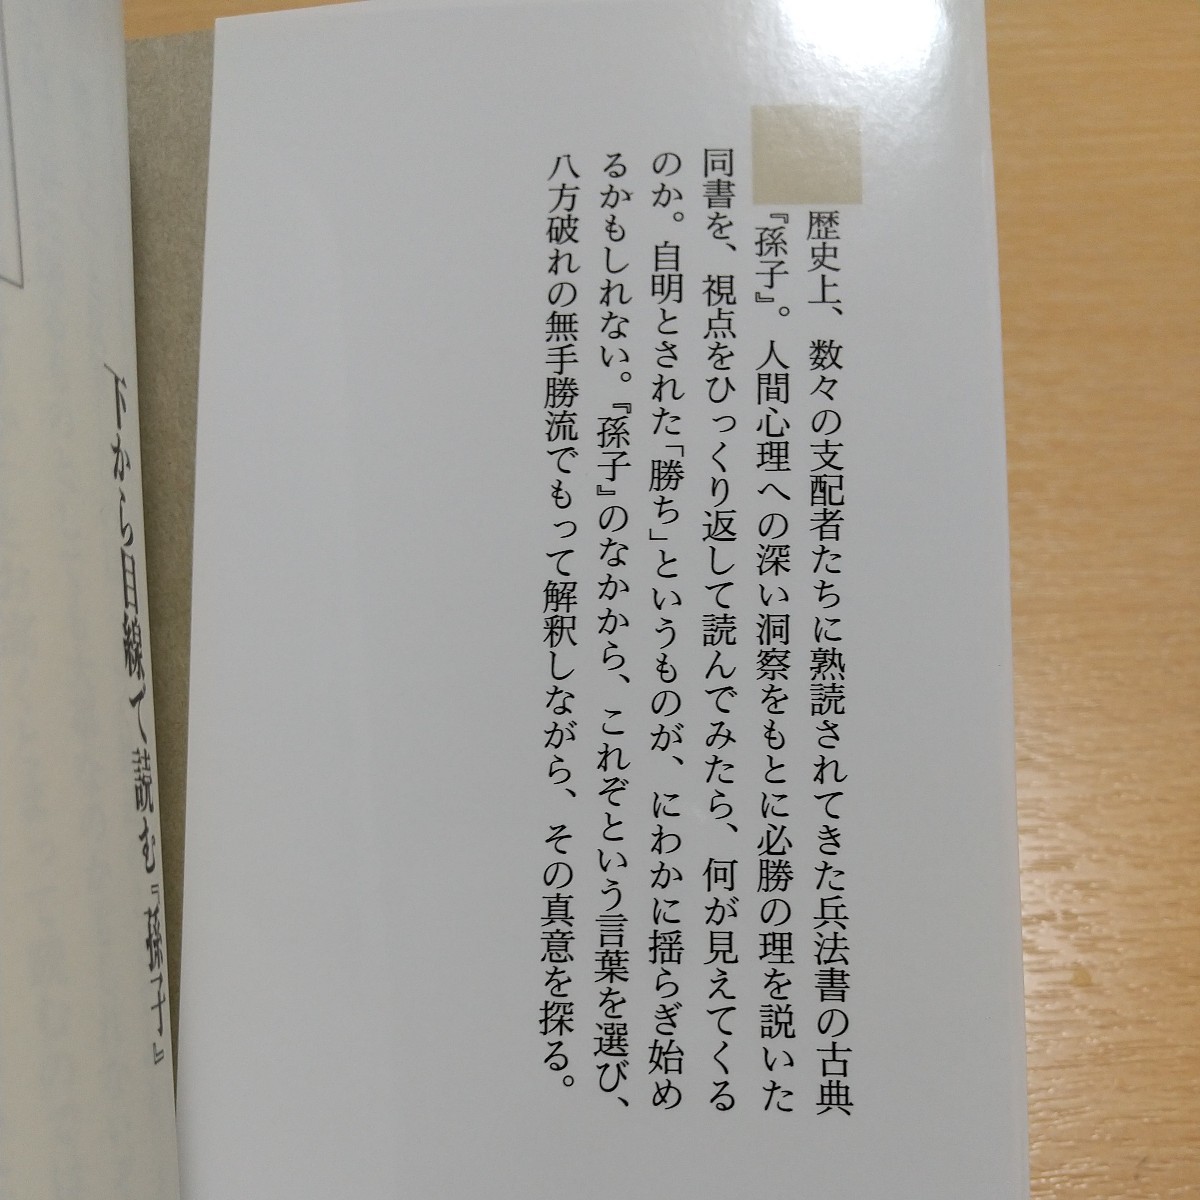 歴史上、数々の支配者たちに熟読されてきた兵法書の古典
『孫子』。人間心理への深い洞察をもとに必勝の理を説いた
同書を、視点をひっくり返して読んでみたら、何が見えてくる
のか。自明とされた「勝ち」というものが、にわかに揺らぎ始め
るかもしれない。『孫子』のなかから、これぞという言葉を選び、
八方破れの無手勝流でもって解釈しながら、その真意を探る。
下から目線で読む『孫子』